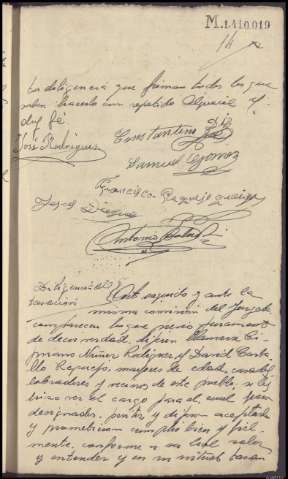 M.1410.019
14
la diligencia que firman todos los que
saben hacerlo con repetido Alguacil
doy fé
José Rodriguez
Constantino
Samuel Gomez
Francisco Requejo
José
Antonio
Diligencia de
tasación
Acto seguido y ante la
misma comisión del Juzgado
comparecen los que previo juramento
de decir verdad dijeron llamarse Ci-
priano Núñez Rodriguez y David Casti-
llo Requejo, mayores de edad, casados
labradores y vecinos de este pueblo, se les
hizo ver el cargo para el cual fueron
designados peritos y dijeron aceptarlo
y prometieron cumplir bien y fiel-
mente, conforme a su leal saber
y entender y en su virtud tasan